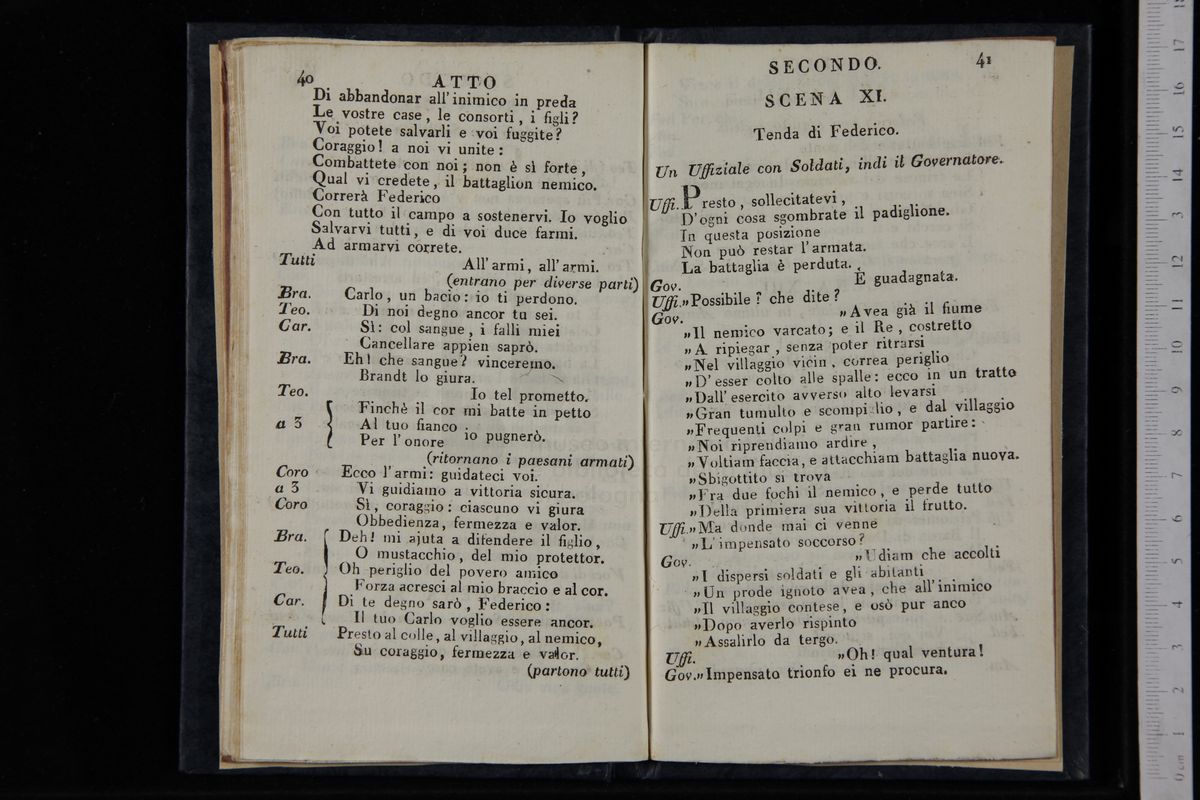 40 ATTO
Di abbandonar all'inimico in preda
Le vostre case, le consorti, i figli?
Voi potete salvarli e voi fuggite?
Coraggio! a noi vi unite:
Combattete con noi; non è sì forte,
Qual vi credete, il battaglion nemico.
Correrà Federico
Con tutto il campo a sostenervi. Io voglio
Salvarvi tutti, e di voi duce farmi.
Ad armarvi correte.
Tutti All'armi, all'armi.
(entrano per diverse parti)
Bra. Carlo, un bacio: io ti perdono.
Teo. Di noi degno ancor tu sei.
Car. Sì: col sangue, i falli miei
Cancellare appien saprò.
Bra. Eh! che sangue? vinceremo.
Brandt lo giura.
Teo. Io tel prometto.
Finchè il cor mi batte in petto
a 3 Al tuo fianco
Per l'onore io pugnerò.
(ritornano i paesani armati)
Coro Ecco l'armi: guidateci voi.
a 3 Vi guidiamo a vittoria sicura.
Coro Sì, coraggio: ciascuno vi giura
Obbedienza, fermezza e valor.
Bra. Deh! mi ajuta a difendere il figlio,
O mustacchio, del mio protettor.
Teo. Oh periglio del povero amico
Forza acresci al mio braccio e al cor.
Car. Di te degno sarò, Federico:
Il tuo Carlo voglio essere ancor.
Tutti Presto al colle, al villaggio, al nemico,
Su coraggio, fermezza e valor.
(partono tutti)
SECONDO. 41
SCENA XI.
Tenda di Federico.
Un Uffiziale con Soldati, indi il Governatore.
Uffi. Presto, sollecitatevi,
D'ogni cosa sgombrate il padiglione.
In questa posizione
Non può restar l'armata.
La battaglia è perduta.
Gov. È guadagnata.
Uffi. »Possibile? che dite?
Gov. »Avea già il fiume
»Il nemico varcato; e il Re, costretto
»A ripiegar, senza poter ritrarsi
»Nel villaggio vicin, correa periglio
»D'esser colto alle spalle: ecco in un tratto
»Dall'esercito avverso alto levarsi
»Gran tumulto e scompiglio, e dal villaggio
»Frequenti colpi e gran rumor partire:
»Noi riprendiamo ardire,
»Voltiam faccia, e attacchiam battaglia nuova.
»Sbigottito si trova
»Fra due fochi il nemico, e perde tutto
»Della primiera sua vittoria il frutto.
Uffi. »Ma donde mai ci venne
»L'impensato soccorso?
Gov. »Udiam che accolti
»I dispersi soldati e gli abitanti
»Un prode ignoto avea, che all'inimico
»Il villaggio contese, e osò pur anco
»Dopo averlo rispinto
»Assalirlo da tergo.
Uffi. »Oh! qual ventura!
Gov. »Impensato trionfo ei ne procura.